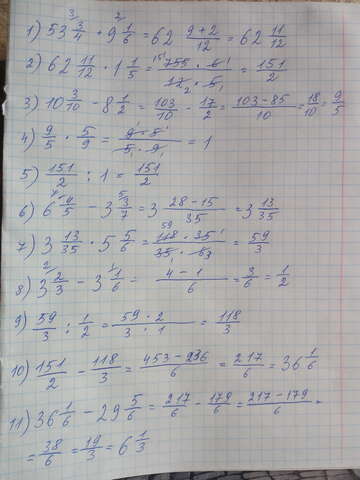 1) 53 3/4 + 9 1/6 = 62 (9+2)/12 = 62 11/12
2) 62 11/12 · 1 1/5 = (755 · 6)/(12 · 5) = 151/2
3) 10 3/10 - 8 1/2 = 103/10 - 17/2 = (103-85)/10 = 18/10 = 9/5
4) 9/5 · 5/9 = (9 · 5)/(5 · 9) = 1
5) 151/2 : 1 = 151/2
6) 6 4/5 - 3 3/7 = 3 (28-15)/35 = 3 13/35
7) 3 13/35 · 5 5/6 = (118 · 35)/(35 · 6) = 59/3
8) 3 2/3 - 3 1/6 = (4-1)/6 = 3/6 = 1/2
9) 59/3 : 1/2 = (59 · 2)/(3 · 1) = 118/3
10) 151/2 - 118/3 = (453-236)/6 = 217/6 = 36 1/6
11) 36 1/6 - 29 5/6 = 217/6 - 179/6 = (217-179)/6 =
= 38/6 = 19/3 = 6 1/3